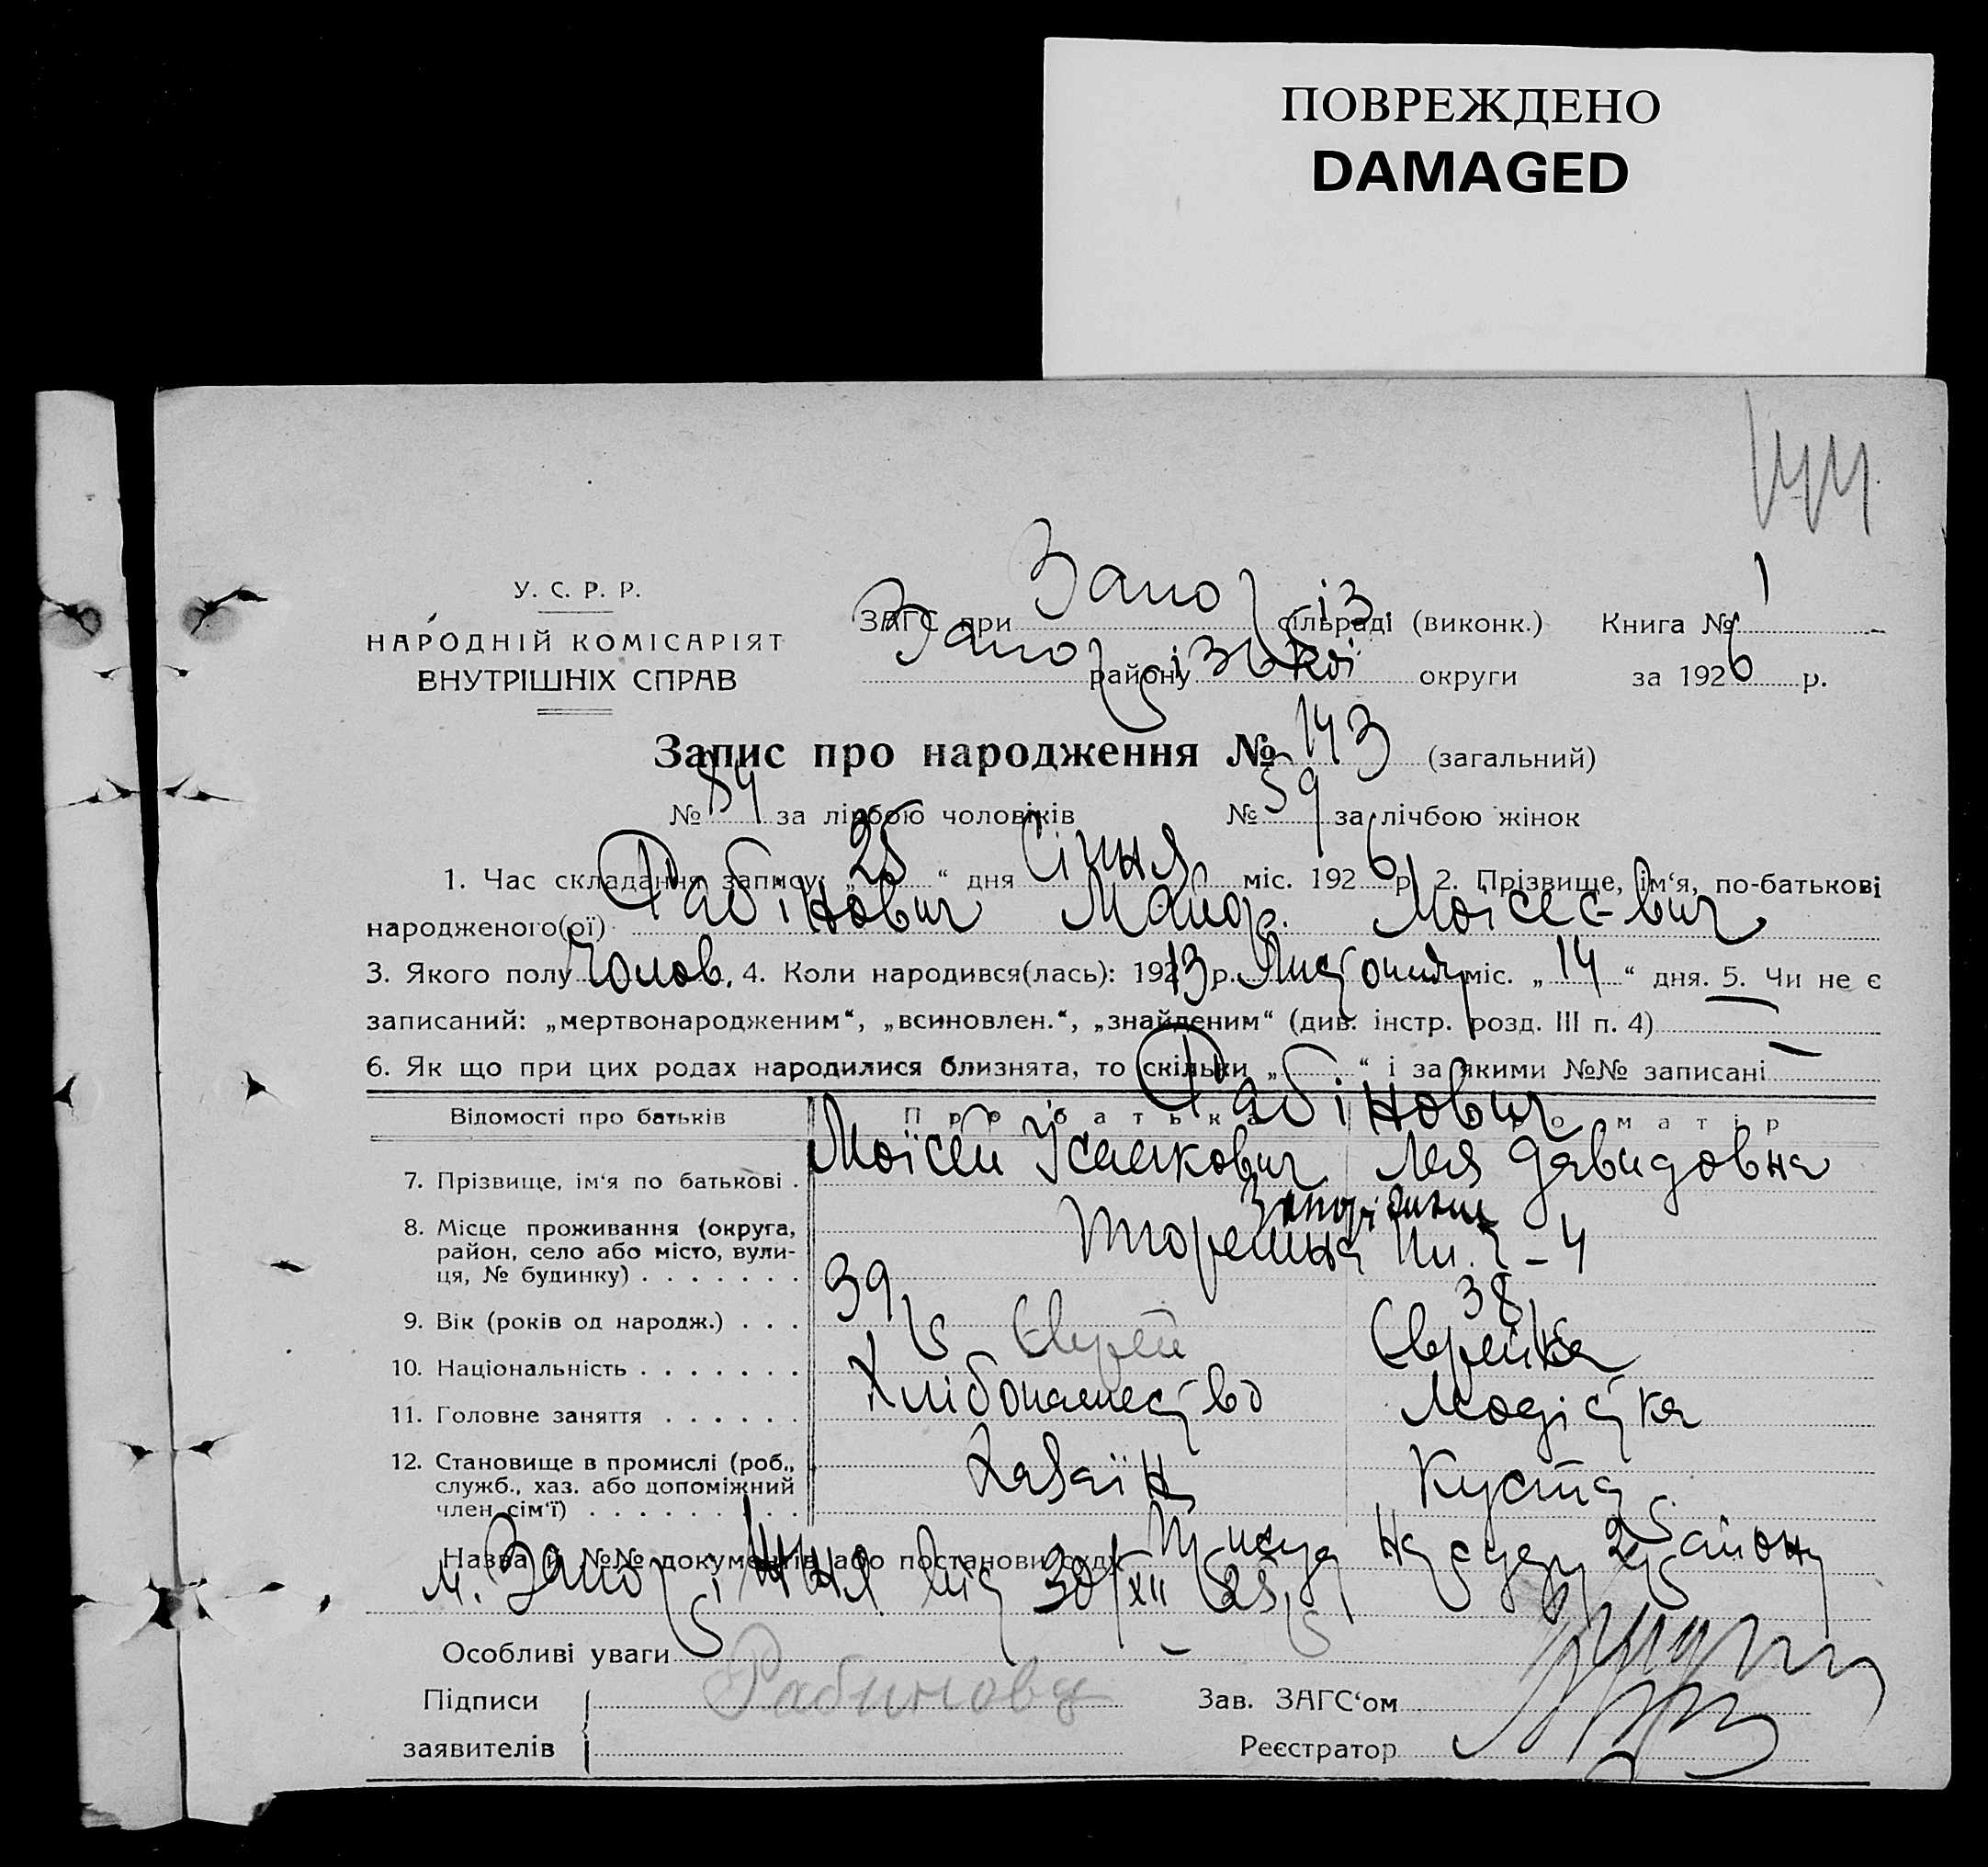 ПОВРЕЖДЕНО
DAMAGED
У. С. Р. Р.
НАРОДНІЙ КОМІСАРІЯТ
ВНУТРІШНІХ СПРАВ
ЗАГС при Запоріз. сільраді (виконк.) Книга № 1
району Запорізької округи за 1926 р.
Запис про народження № 143 (загальний)
№ 84 за лічбою чоловіків № 59 за лічбою жінок
1. Час складання запису: „25“ дня Січня міс. 1926 р. 2. Прізвище, ім‘я, по-батькові
народженого(ої) Рабінович Моісеєвич
3. Якого полу Чолов. 4. Коли народився(лась): 1913 р. Листопад міс. „14“ дня. 5. Чи не є
записаний: „мертвонародженим“, „всиновлен.“, „знайденим“ (див. інстр. розд. III п. 4) —
6. Як що при цих родах народилися близнята, то скільки „ “ і за якими №№ записані —
Відомості про батьків Про батька Про матір
Рабінович
7. Прізвище, ім‘я по батькові . Моїсей Ісаакович Лея Давидовна
8. Місце проживання (округа, район, село або місто, вули-ця, № будинку) . . . . . . . Запоріжжя
9. Вік (років од народж.) . . . 39 38
10. Національність . . . . . . . Єврей Єврейка
11. Головне заняття . . . . . . Хлібопашество Модістка
12. Становище в промислі (роб., служб., хаз. або допоміжний член сім‘ї) . . . . . . . . . Хазяїн Куста
Назва й №№ документів або постанови суду Нарсуду 2 району
м. Запоріжжя від 30/XII 25 р
Особливі уваги —
Підписи
заявителів
Рабинович
Зав. ЗАГС‘ом
Реєстратор